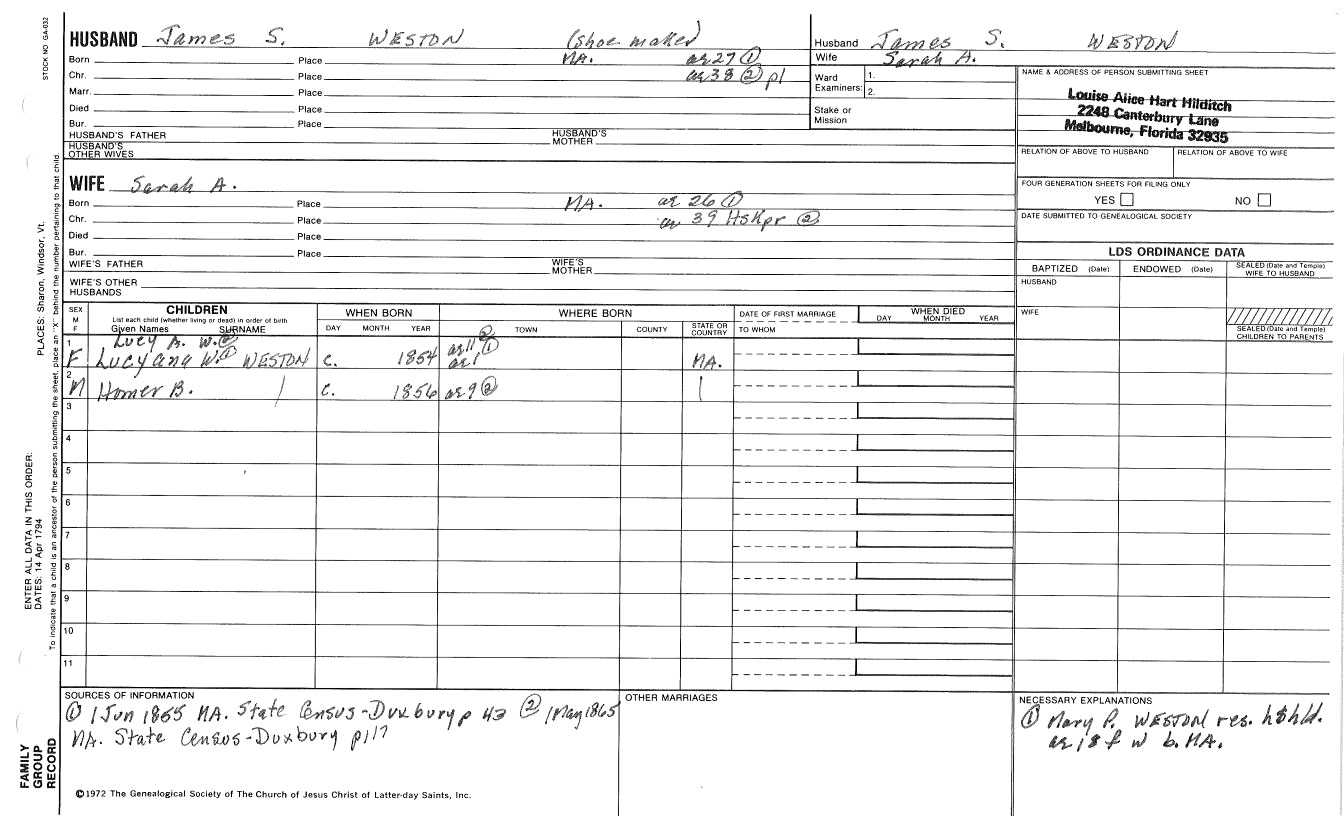 STOCK NO GA-032
HUSBAND James S. WESTON (shoe maker)
Born Place MA. ae 27 ①
Chr. Place ae 38 ② pl
Marr. Place
Died Place
Bur. Place
HUSBAND'S FATHER HUSBAND'S MOTHER
HUSBAND'S OTHER WIVES
Husband James S. WESTON
Wife Sarah A.
Ward Examiners: 1.
2.
Stake or Mission
NAME & ADDRESS OF PERSON SUBMITTING SHEET
Louise Alice Hart Hilditch
2248 Canterbury Lane
Melbourne, Florida 32935
RELATION OF ABOVE TO HUSBAND RELATION OF ABOVE TO WIFE
WIFE Sarah A.
Born Place MA. ae 26 ①
Chr. Place ae 39 HsKpr ②
Died Place
Bur. Place
WIFE'S FATHER WIFE'S MOTHER
WIFE'S OTHER HUSBANDS
FOUR GENERATION SHEETS FOR FILING ONLY
YES NO
DATE SUBMITTED TO GENEALOGICAL SOCIETY
LDS ORDINANCE DATA
BAPTIZED (Date) ENDOWED (Date) SEALED (Date and Temple) WIFE TO HUSBAND
HUSBAND
WIFE
SEALED (Date and Temple) CHILDREN TO PARENTS
SEX M F
CHILDREN
List each child (whether living or dead) in order of birth
Given Names SURNAME
WHEN BORN
DAY MONTH YEAR
WHERE BORN
TOWN COUNTY STATE OR COUNTRY
DATE OF FIRST MARRIAGE
TO WHOM
WHEN DIED
DAY MONTH YEAR
Lucy B. W. ② ae 11 ②
1 F Lucyana W. ① WESTON c. 1854 ae 1 ① MA.
2 M Homer B. | c. 1856 ae 9 ② |
3
4
5
6
7
8
9
10
11
SOURCES OF INFORMATION
① 1 Jun 1855 MA. State Census-Duxbury p 43 ② 1 May 1865
MA. State Census-Duxbury p117
OTHER MARRIAGES
NECESSARY EXPLANATIONS
① Mary P. WESTON res. hshld.
ae 18 f w b. MA.
©1972 The Genealogical Society of The Church of Jesus Christ of Latter-day Saints, Inc.
ENTER ALL DATA IN THIS ORDER:
DATES: 14 Apr 1794 PLACES: Sharon, Windsor, Vt.
To indicate that a child is an ancestor of the person submitting the sheet, place an "X" behind the number pertaining to that child.
FAMILY
GROUP
RECORD